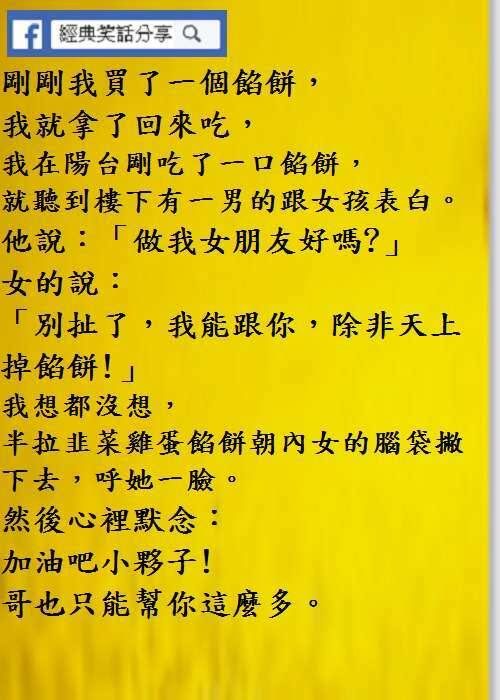 f 經典笑話分享
剛剛我買了一個餡餅，
我就拿了回來吃，
我在陽台剛吃了一口餡餅，
就聽到樓下有一男的跟女孩表白。
他說：「做我女朋友好嗎?」
女的說：
「別扯了，我能跟你，除非天上
掉餡餅!」
我想都沒想，
半拉韭菜雞蛋餡餅朝內女的腦袋撇
下去，呼她一臉。
然後心裡默念：
加油吧小夥子!
哥也只能幫你這麼多。